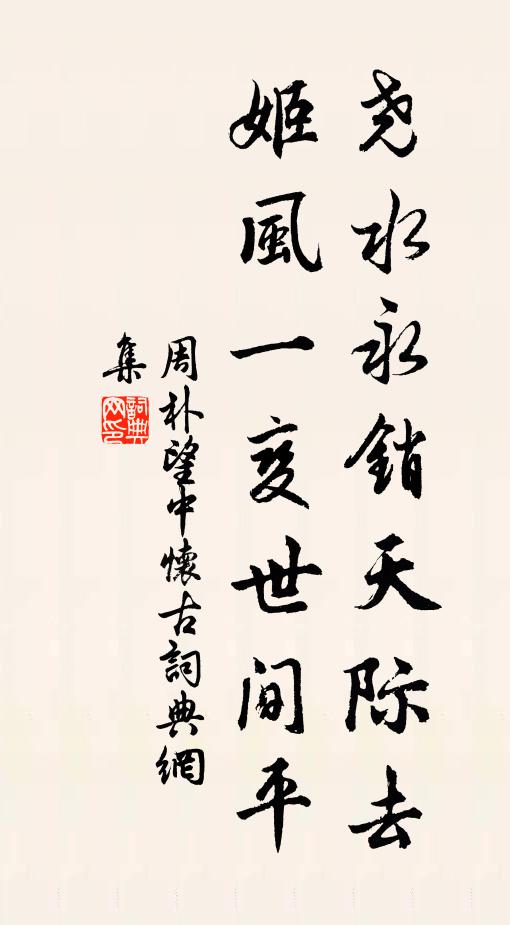 尧水永銷天际去
姬風一变世间平
周朴望中懷古詞典網
集
詞典網印